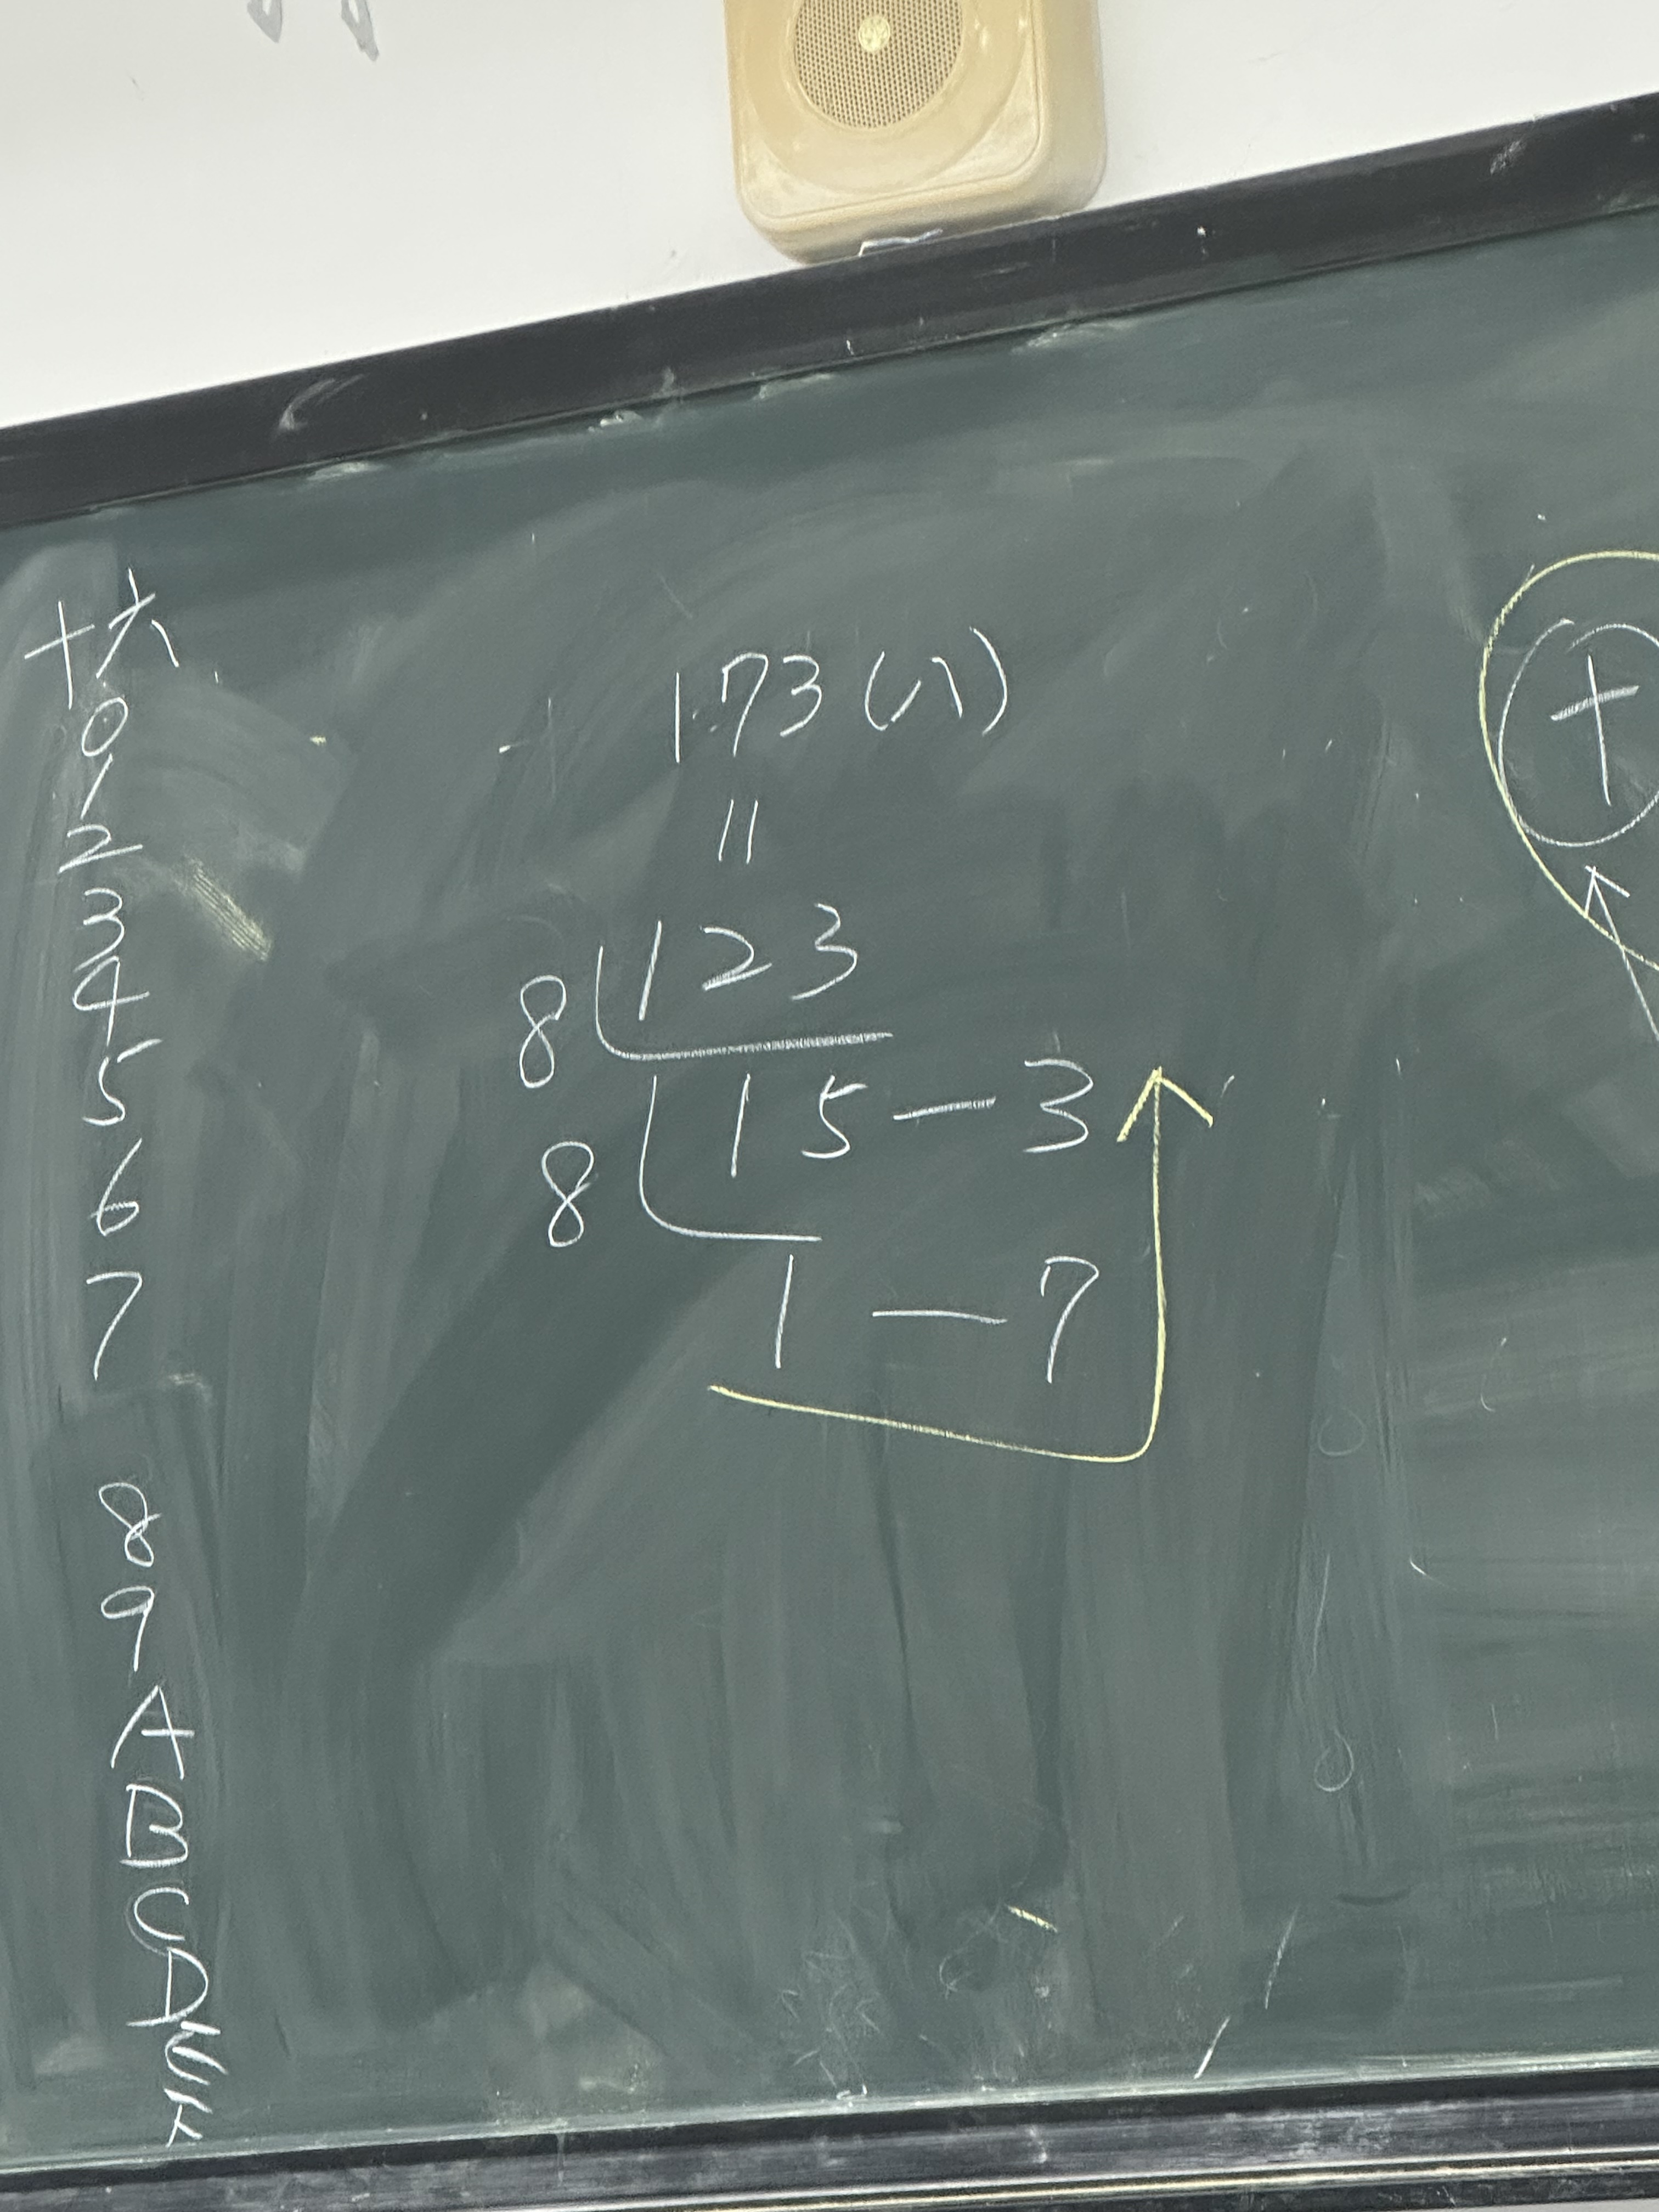 十六
0
1
2
3
4
5
6
7
8
9
A
B
C
D
E
F
173(八)
=
8 123
8 15 — 3
1 — 7
十